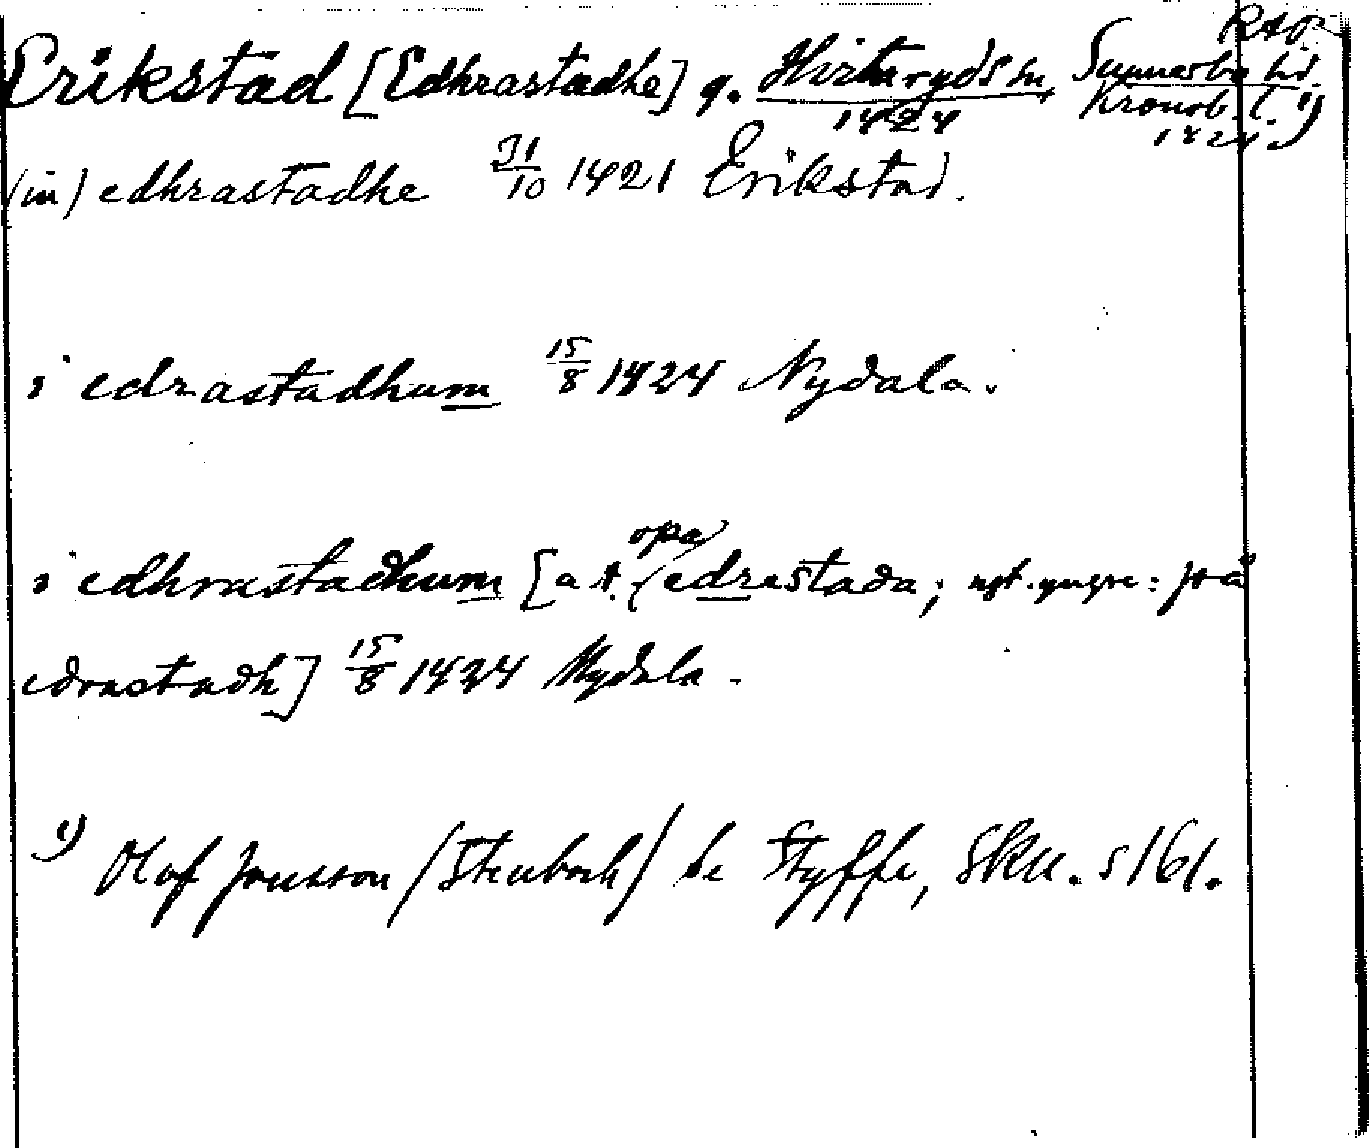 RAp
Erikstad [Edhrastadhe] g. Hvitaryds sn, Sunnerbo hd.
1424 Kronob. l. 1)
1424.
(in) edhrastadhe 31/10 1421 Erikstad.
i edrastadhum 15/8 1424 Nydala.
opa
i edhrastadhum [a t. (edrastada; ngt. yngre: pa
edrastadh] 15/8 1424 Nydala.
1) Olof Jonsson (Stenbock) se Styffe, SkU. s 161.